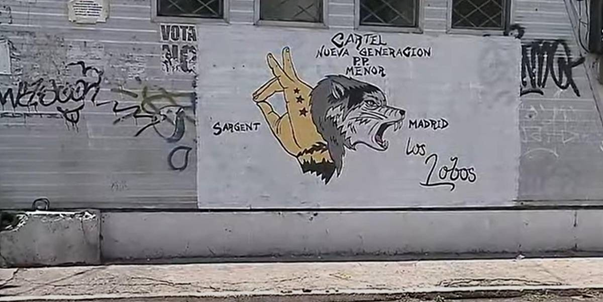 VOTA
NO
CARTEL
NUEVA GENERACION
P.P.
MENOR
SARGENT
MADRID
Los
Lobos